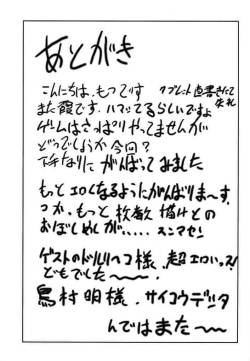 あとがき
こんにちは、もつです タブレット直書きにて
失礼
また霞です、ハマってるらしいですよ
ゲームはさっぱりやってませんが
どーでしょうか今回?
下手なりにがんばってみました
もっとエロくなるようにがんばりまーす。
つか、もっと枚数描けとの
おぼしめしが、、、、、スンマセン
ゲストのドリルヘコ様、超エロいっス!
どもでした〜〜、
鳥村明様、サイコウデッタ
んではまた〜〜